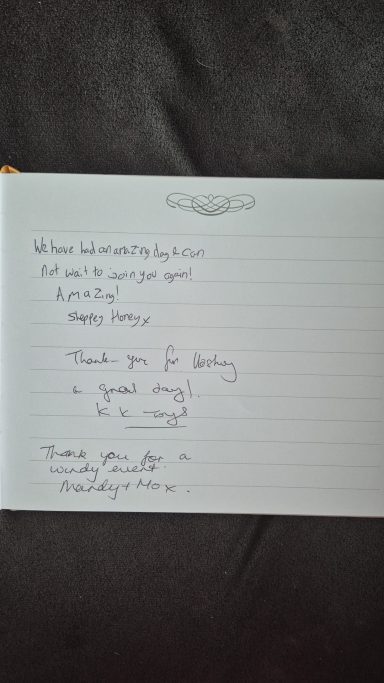 We have had an amazing day & can
not wait to join you again!
Amazing!
Sheppey Honey x
Thank-you for
a great day!
KK Toys
Thank you for a
windy event.
Mandy + Mo x.